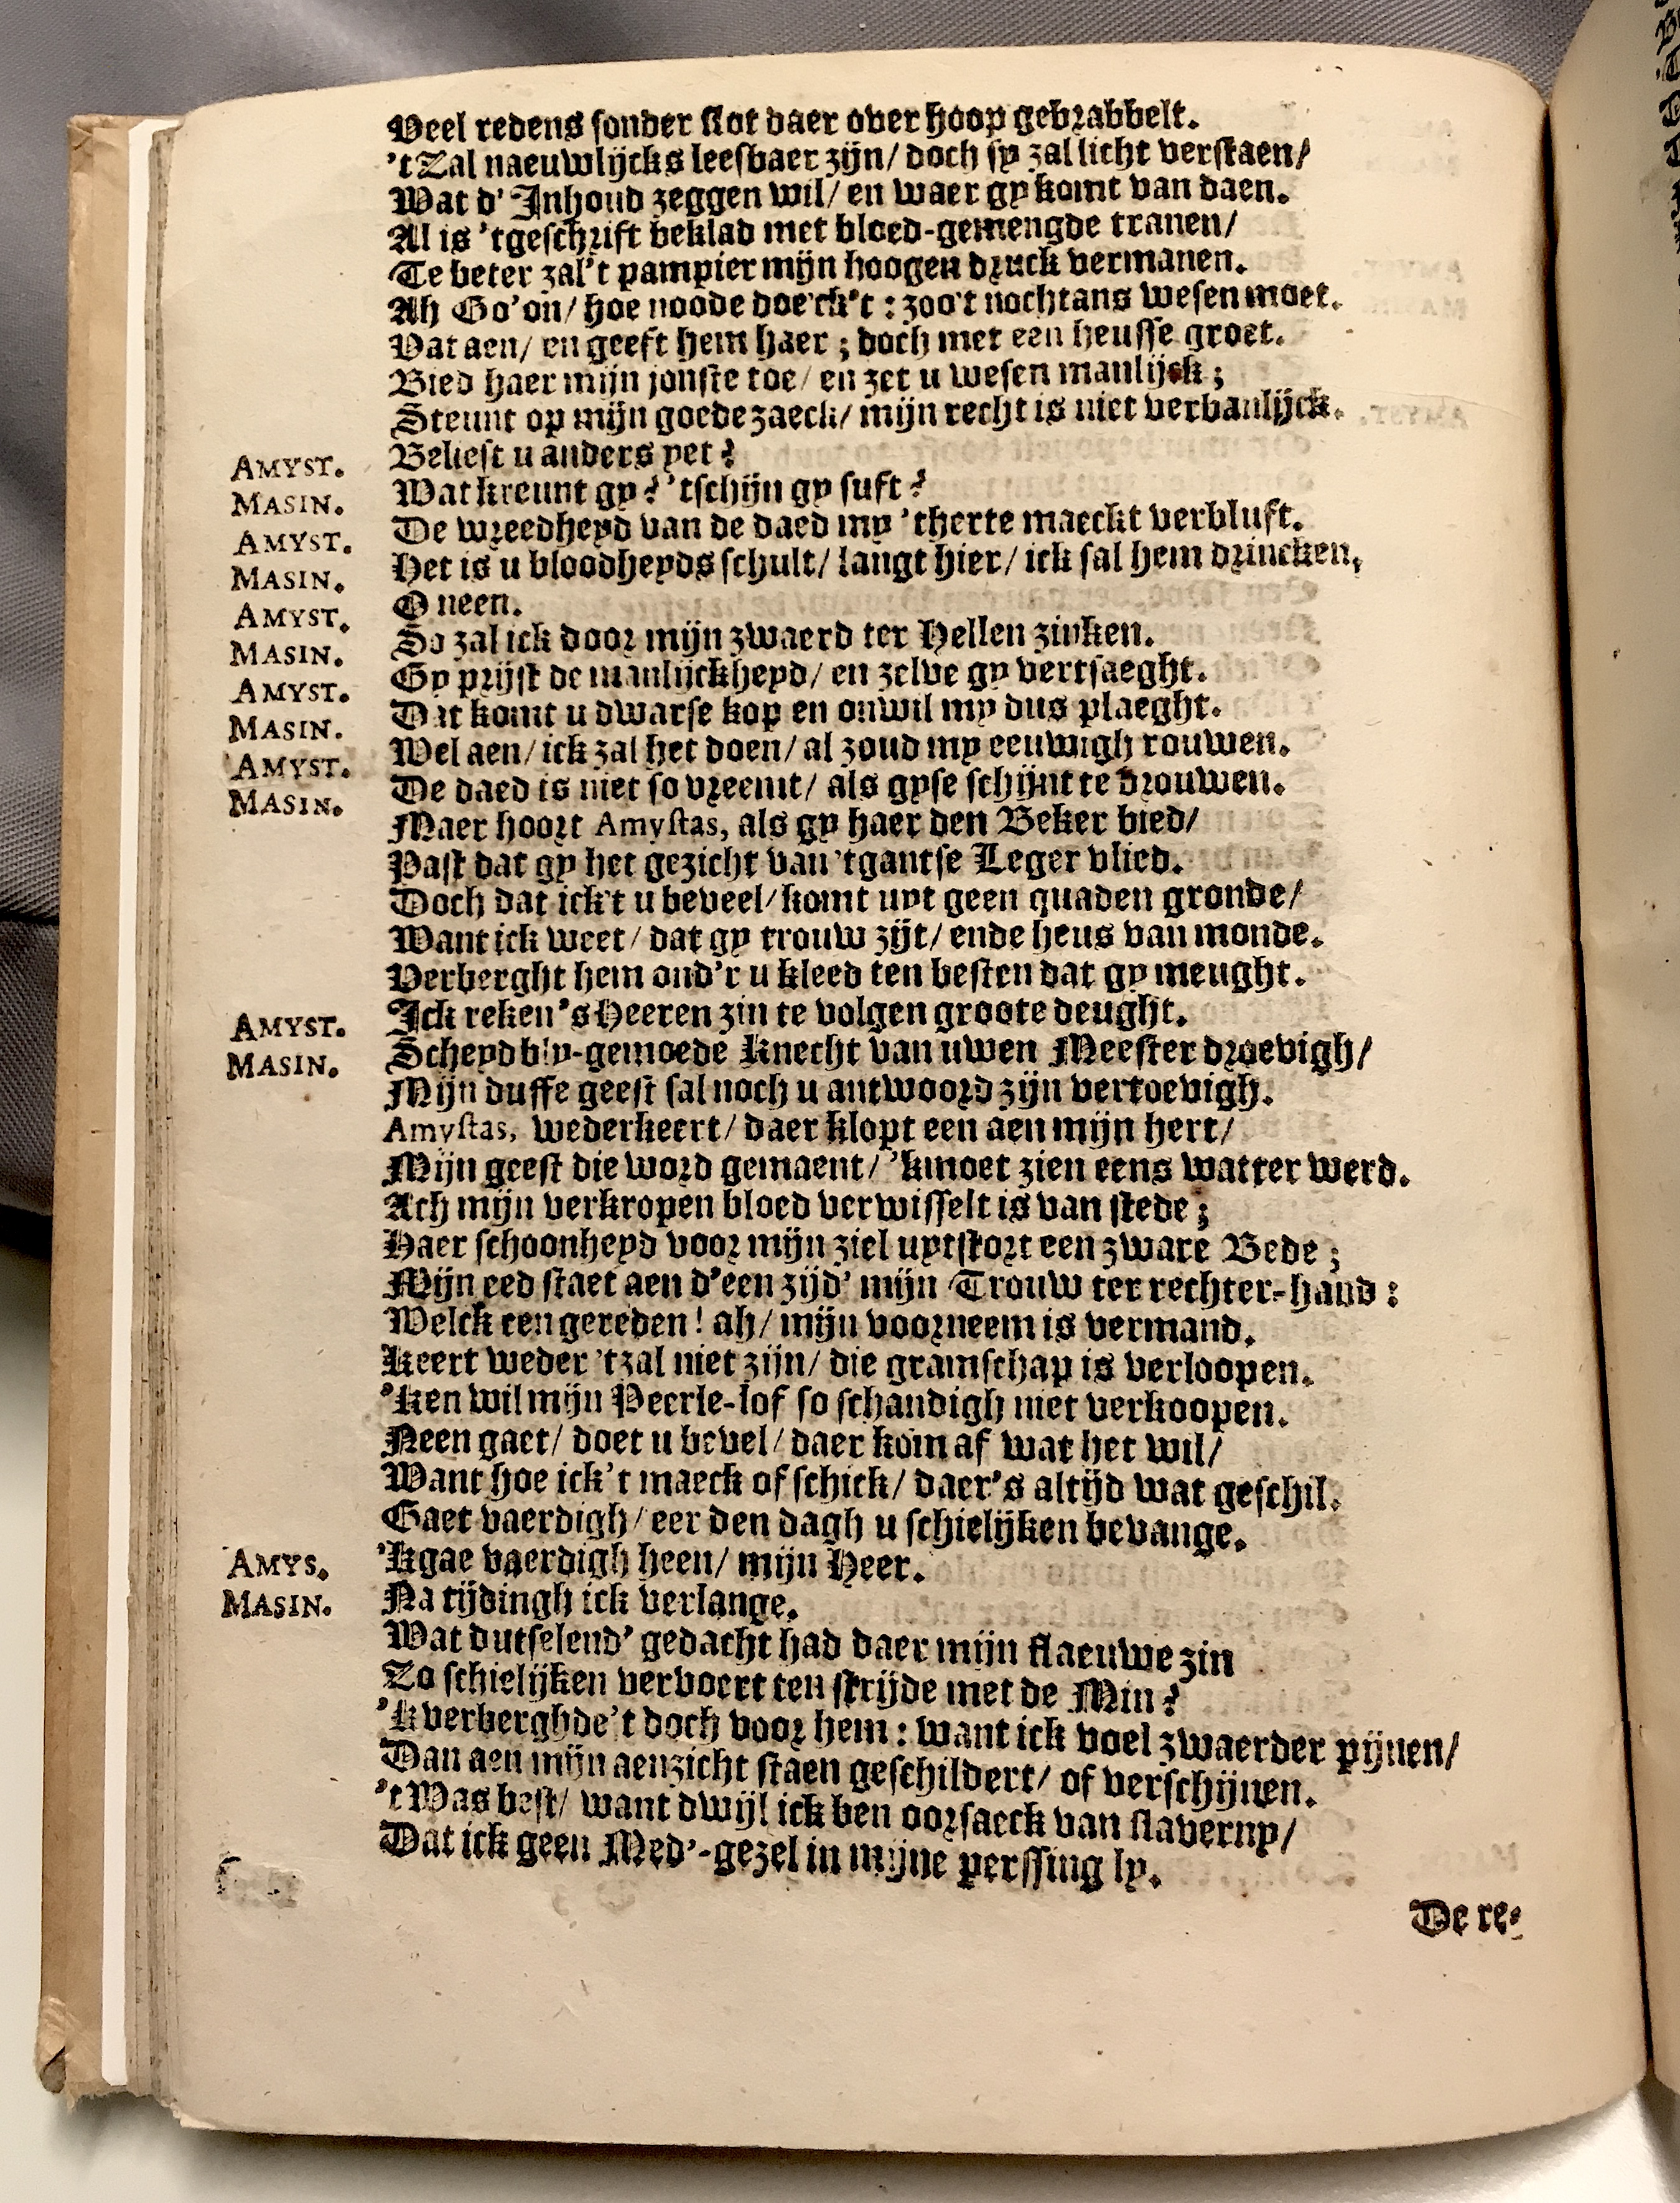 Veel redens sonder slot daer over hoop gebrabbelt.
't Zal naeuwlijcks leesbaer zijn/ doch sy zal licht verstaen/
Wat d'Inhoud zeggen wil/ en waer gy komt van daen.
Al is 'tgeschrift beklad met bloed-gemengde tranen/
Te beter zal't pampier mijn hoogen druck vermanen.
Ah Go'on/ hoe noode doe'ck't : zoo't nochtans wesen moet.
Vat aen/ en geeft hem haer ; doch met een heusse groet.
Bied haer mijn jonste toe/ en zet u wesen manlijck ;
Steunt op mijn goede zaeck/ mijn recht is niet verbanlijck.
AMYST. Beliest u anders yet ?
MASIN. Wat kreunt gy ? 'tschijn gy suft ?
AMYST. De wreedheyd van de daed my 'therte maeckt verbluft.
MASIN. Het is u bloodheyds schult/ langt hier/ ick sal hem drincken.
AMYST. O neen.
MASIN. So zal ick door mijn zwaerd ter Hellen zinken.
AMYST. Gy prijst de manlijckheyd/ en zelve gy vertsaeght.
MASIN. Dat komt u dwarse kop en onwil my dus plaeght.
AMYST. Wel aen/ ick zal het doen/ al zoud my eeuwigh rouwen.
MASIN. De daed is niet so vreemt/ als gyse schijnt te drouwen.
Maer hoort Amystas, als gy haer den Beker bied/
Past dat gy het gezicht van 'tgantse Leger vlied.
Doch dat ick't u beveel/ komt uyt geen quaden gronde/
Want ick weet/ dat gy trouw zijt/ ende heus van monde.
Verberght hem ond'r u kleed ten besten dat gy meught.
AMYST. Ick reken 's Heeren zin te volgen groote deught.
MASIN. Scheyd bly-gemoede Knecht van uwen Meester droevigh/
Mijn duffe geest sal noch u antwoord zijn vertoevigh.
Amystas, wederkeert/ daer klopt een aen mijn hert/
Mijn geest die word gemaent/ 'kmoet zien eens watter werd.
Ach mijn verkropen bloed verwisselt is van stede ;
Haer schoonheyd voor mijn ziel uytstort een zware Bede ;
Mijn eed staet aen d'een zijd' mijn Trouw ter rechter-hand :
Welck een gereden ! ah/ mijn voorneem is vermand.
Keert weder 'tzal niet zijn/ die gramschap is verloopen.
'Ken wil mijn Peerle-lof so schandigh niet verkoopen.
Neen gaet/ doet u bevel/ daer kom af wat het wil/
Want hoe ick't maeck of schick/ daer's altijd wat geschil.
Gaet vaerdigh/ eer den dagh u schielijken bevange.
AMYS. 'Kgae vaerdigh heen/ mijn Heer.
MASIN. Na tijdingh ick verlange.
Wat dutselend' gedacht had daer mijn flaeuwe zin
Zo schielijken vervoert ten strijde met de Min ?
'K verberghde't doch voor hem : want ick voel zwaerder pijnen/
Dan aen mijn aenzicht staen geschildert/ of verschijnen.
't Was best/ want dwijl ick ben oorsaeck van slaverny/
Dat ick geen Med'-gezel in mijne perssing ly.
De re-